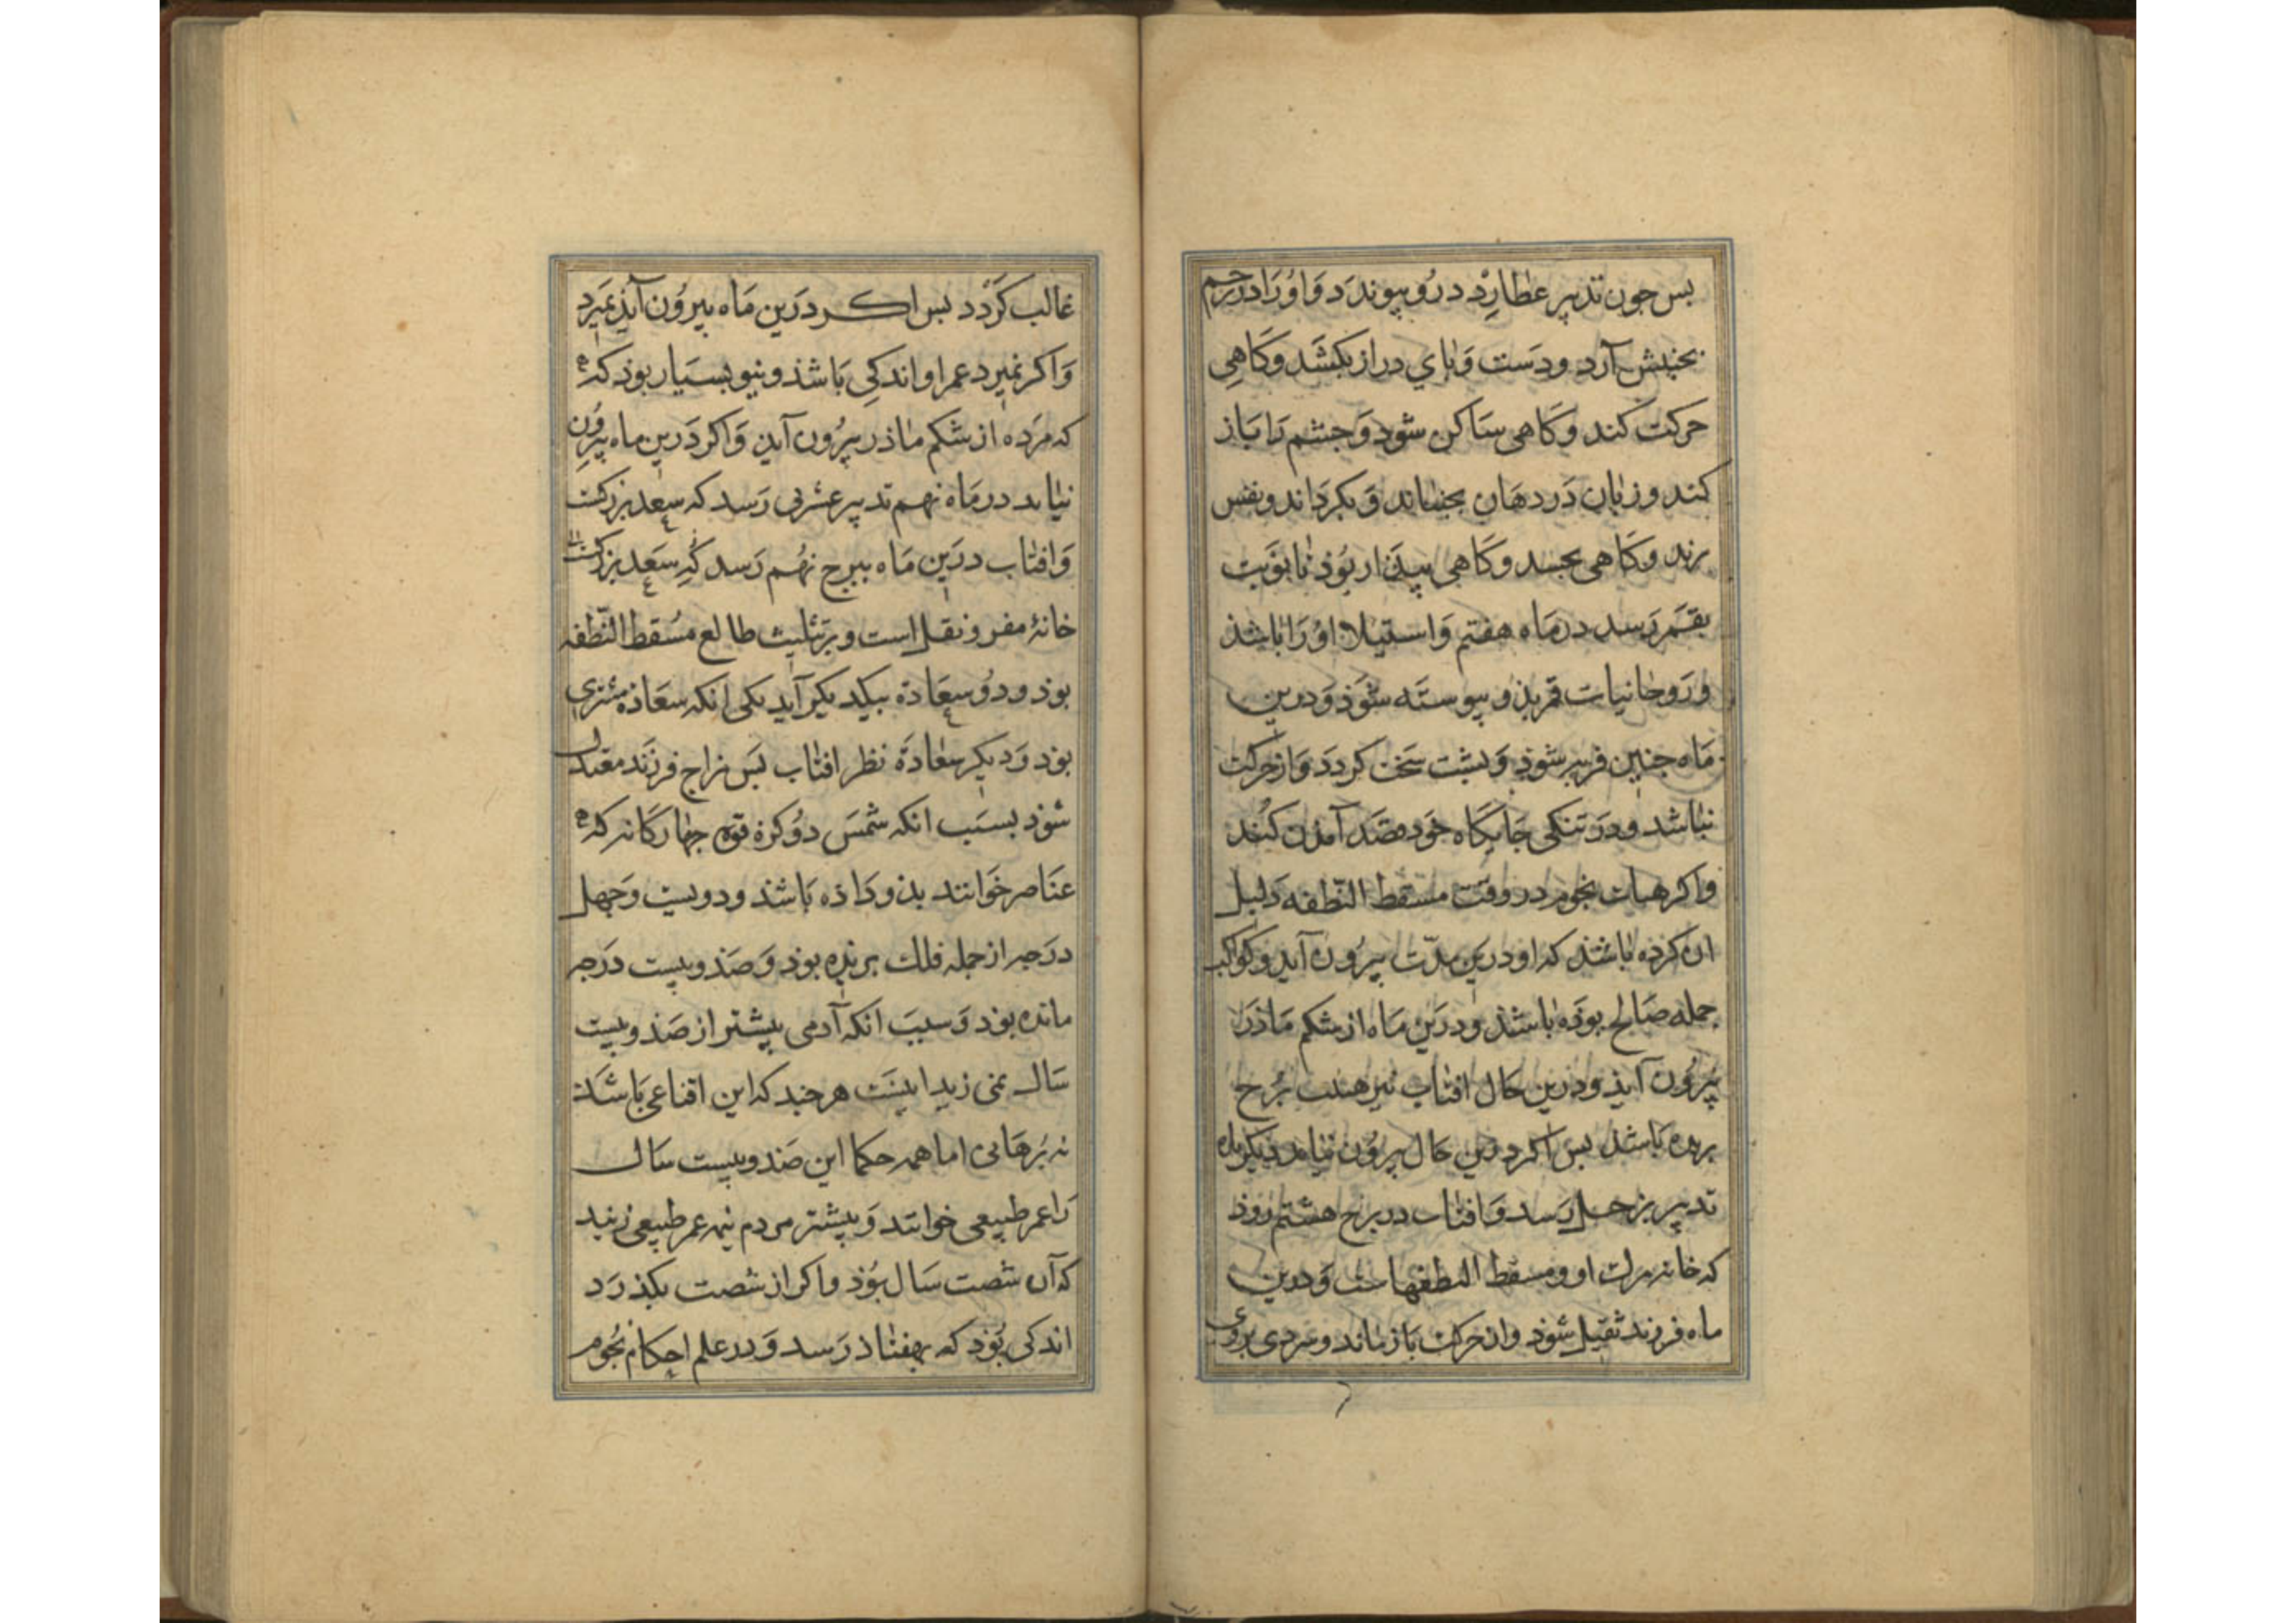 بس جون تدبیر عطارد درو پیوندد و او را در رحم
بجنبش آرد و دست و بای دراز بکشد و کاهی
حرکت کند و کاهی ساکن شود و جشم را باز
کند و زبان در دهان بجنباند و بکرداند و نفس
زند و کاهی بخسد و کاهی بیدار بوذ تا نوبت
بقمر رسد در ماه هفتم و استیلا او را باشذ
و روحانیات قمر بذو پیوسته شوذ و درین
ماه جنین فربه شوذ و بشت سخت کردد و از حرکت
نباشد و در تنکی جایکاه خود قصد آمدن کند
و اکر هیات نجوم در وقت مسقط النطفه دلیل
ان کرذه باشذ که او درین مدت بیرون آید و کواکب
جمله صالح بوذه باشذ و درین ماه از شکم ماذر
بیرون آیذ و درین حال افتاب نیز هفت برج
بریده باشذ بس اکر درین حال بیرون نیاید دیکرباره
تدبیر بزحل رسد و افتاب در برج هشتم روذ
که خانه مرک او و مسقط النطفهاست و درین
ماه فرزند ثقیل شوذ و از حرکت باز ماند و سردی بروی
غالب کردد بس اکر درین ماه بیرون آیذ بمیرد
و اکر نمیرد عمر او اندکی باشذ و نیو بسیار بوذ که
که مرده از شکم ماذر بیرون آید و اکر درین ماه بیرون
نیاید در ماه نهم تدبیر بمشتری رسد که سعد بزرکست
و افتاب درین ماه ببرج نهم رسد که سعد بزرکست
خانۀ سفر و نقل است و بر تثلیث طالع مسقط النطفه
بوذ و دو سعادة بیکدیکر آید یکی انکه سعادة مشتری
بوذ و دیکر سعادة نظر افتاب بس مزاج فرزند معتدل
شوذ بسبب انکه شمس دو کرة قوة جهارکانه که
عناصر خوانند بذو داذه باشذ و دویست و جهل
درجه از جمله فلك بریده بوذ و صذ و بیست درجه
مانده بوذ و سبب انکه آدمی بیشتر از صذ و بیست
سال نمی زید اینست هر جند که این اقناعی باشذ
نه برهانی اما همه حکما این صذ و بیست سال
را عمر طبیعی خوانند و بیشتر مردم نیمه عمر طبیعی زیند
که آن شصت سال بوذ و اکر از شصت بکذرد
اندکی بوذ که بهفتاد رسد و در علم احکام نجوم